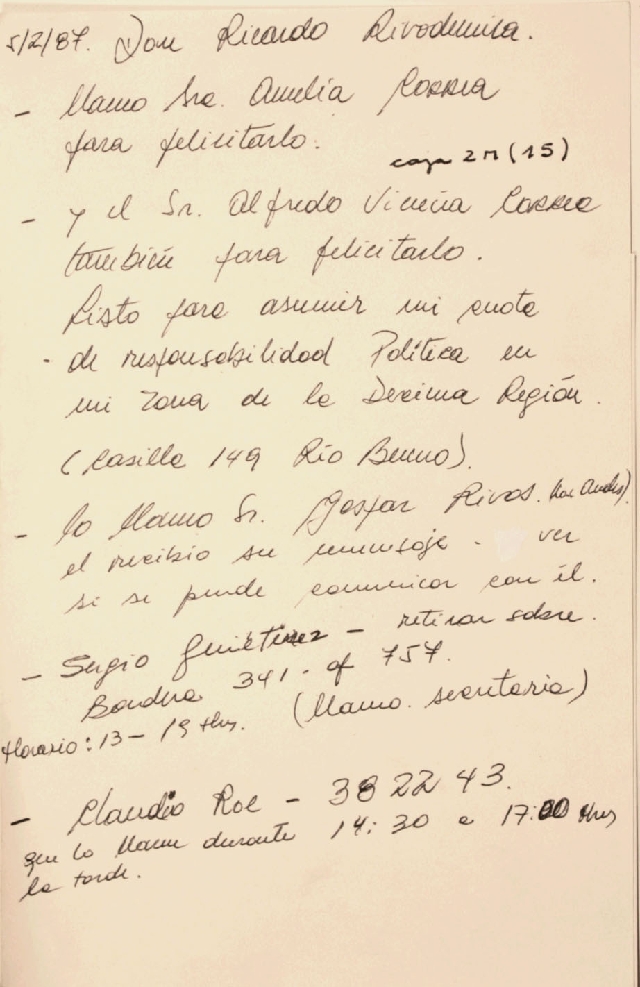 5/2/87. Don Ricardo Rivadeneira.
- llamo Sra. Amelia Correa
para felicitarlo.
caja 2M (15)
- y el Sr. Alfredo Vicuña Correa
también para felicitarlo.
Listo para asumir mi cuota
- de responsabilidad Política en
mi zona de la Decima Región.
(Casilla 149 Río Bueno).
- lo llamo Sr. Gaspar Rivas. (Los Andes)
el recibio su mensaje - ver
si se puede comunicar con él.
- Sergio Gutiérrez - retirar sobre.
Bandera 341. of 757.
Horario: 13 - 19 Hrs. (llamo. secretaria)
- Claudio Roe - 38 22 43.
que lo llame durante 14:30 a 17:00 Hrs
la tarde.